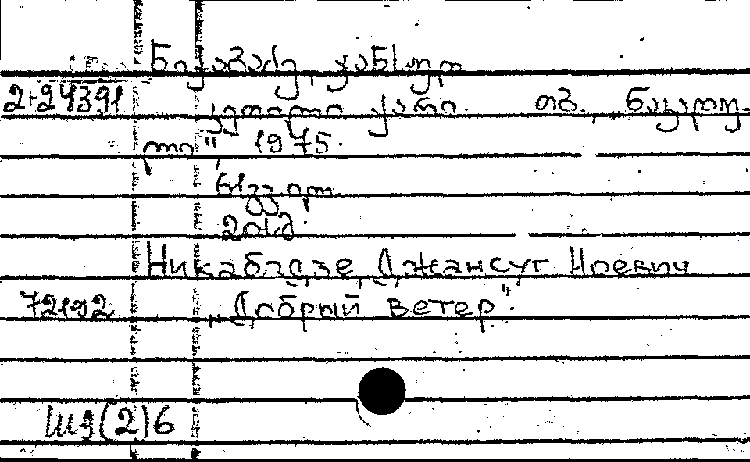 ნიკაბაძე, ჯანსუღ
2-24391 „კეთილი ქარი. თბ., ნაკადუ
ლი", 1975.
61 გვ.
20კ.
Никабадзе, Джансуг Ноевич
72192 „Добрый ветер".
(2)6